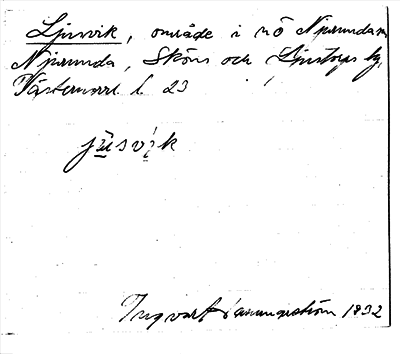 Ljusvik, område i nö Njurunda
Njurunda, Sköns och Ljustorps tg,
Västernorrl. l. 23
jʉ̀svi̇k
Ingvar 1932